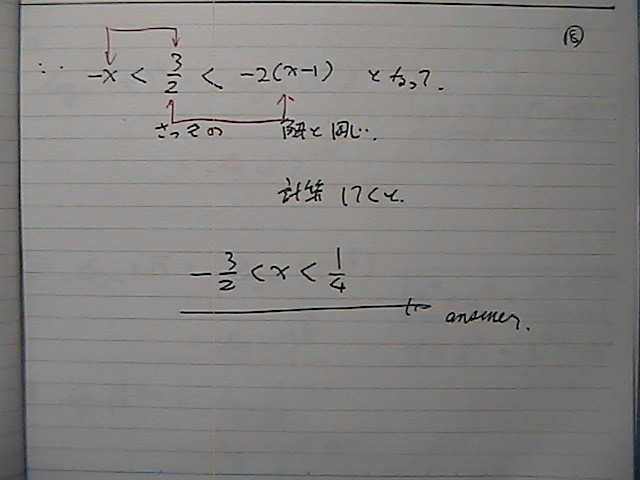 ⑤
∴ -x < 3/2 < -2(x-1) となって.
さっきの 解と同じ.
計算していくと.
-3/2 < x < 1/4
answer.